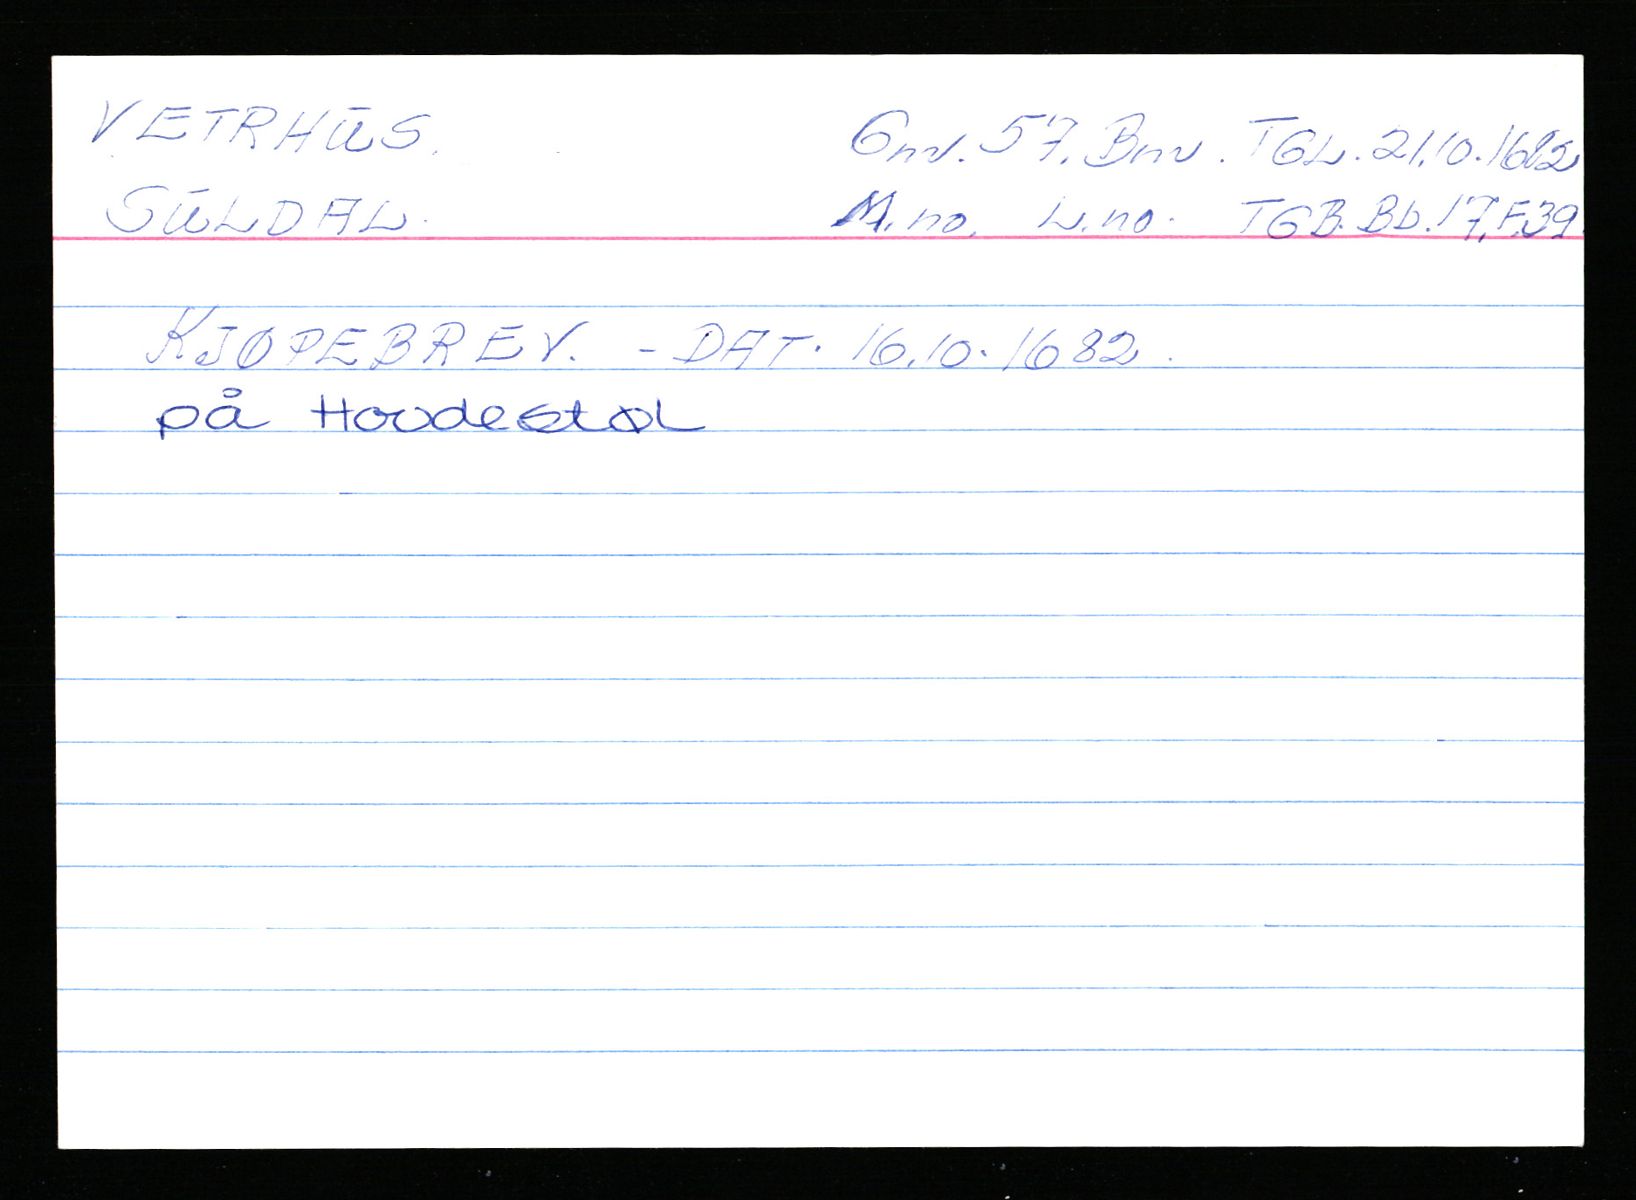 VETRHŪS. Gnr. 57. Bnr. TGL. 21.10.1682
SŪLDAL. M.no. L.no. TGB. Bb. 17, F.39.
KJØPEBREV. - DAT. 16.10.1682.
på Hovdestøl